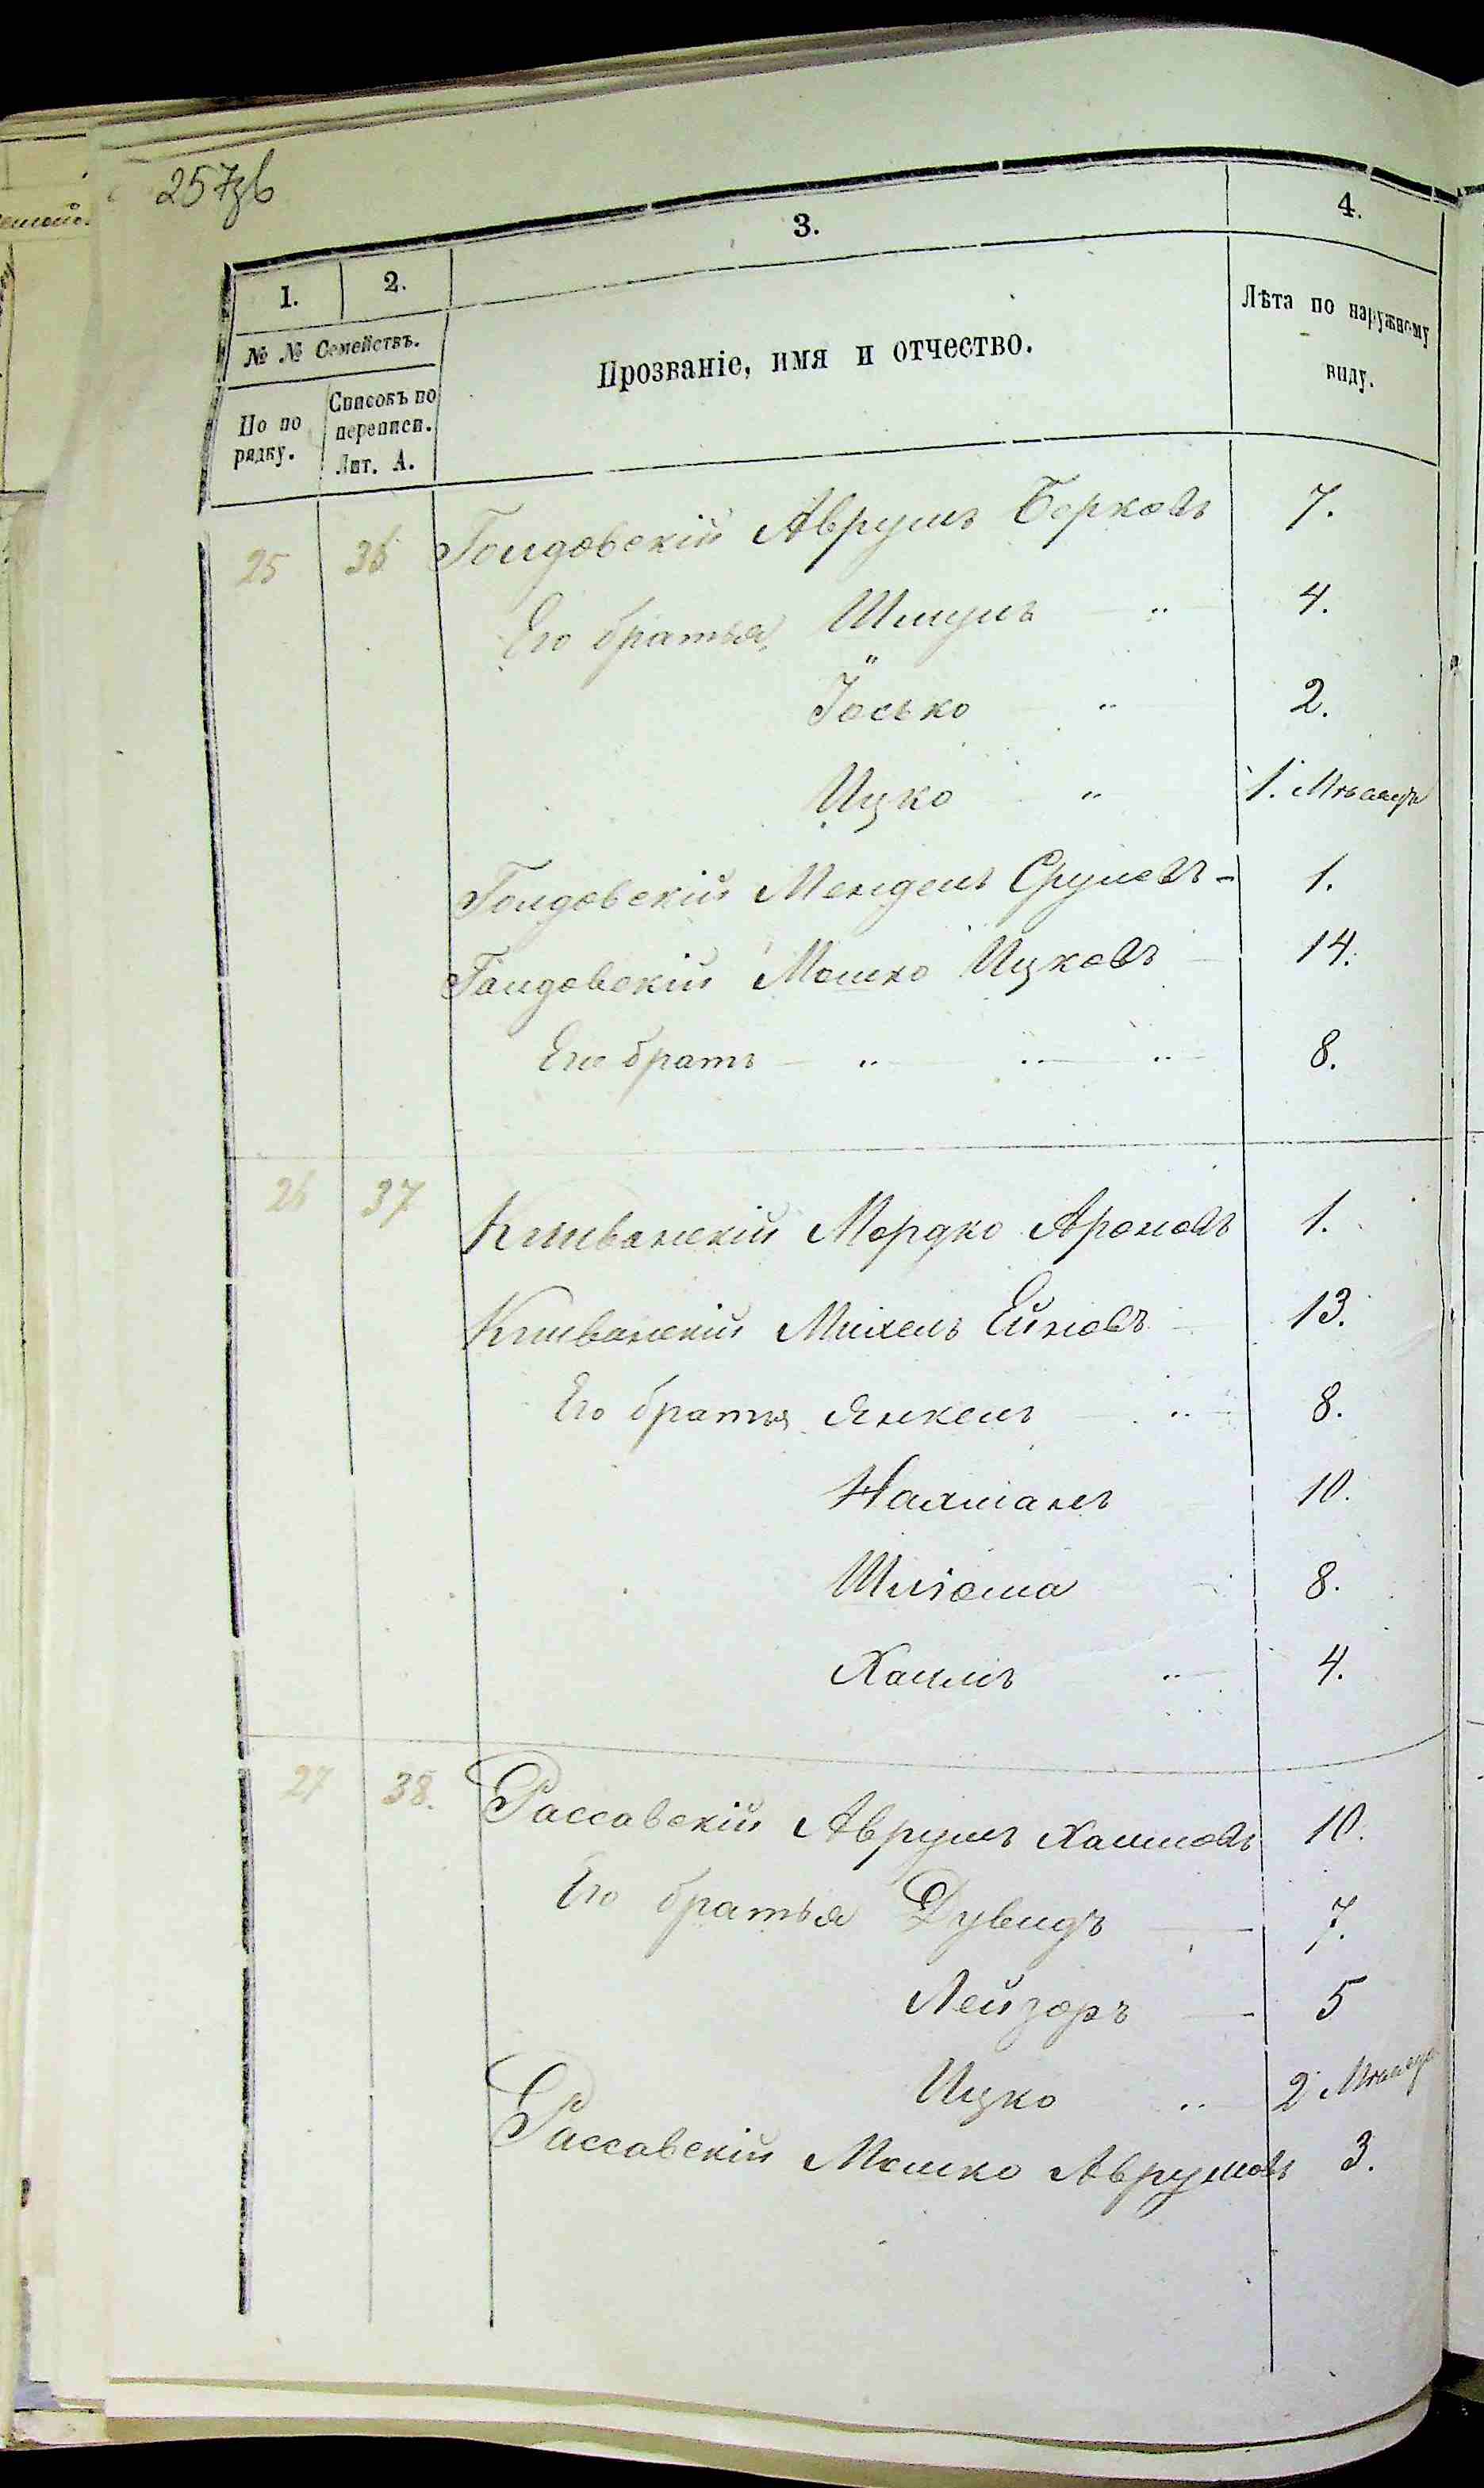 257зв
1. 2. 3. 4.
№ № Семействъ.
По по рядку.
Списокъ по переписи. Лит. А.
Прозваніе, имя и отчество.
Лѣта по наружному виду.
25 36 Голдовскій Аврумъ Берковъ 7.
Его братья Шмуль " 4.
Іосько " 2.
Ицко " 1. Мѣсяцъ
Голдовскій Мендель Срулевъ - 1.
Голдовскій Мошко Ицковъ 14.
Его братъ " " " 8.
26 37 Мордко Ароновъ 1.
Михель 13.
Его братья Янкель " 8.
Нахманъ 10.
Шліома 8.
Хаимъ " 4.
27 38. Рассавскій Аврумъ Хаимовъ 10.
Его братья Дувидъ 7.
Лейзоръ 5
Ицко " 2 Мѣсяца
Рассавскій Мошко Аврумовъ 3.